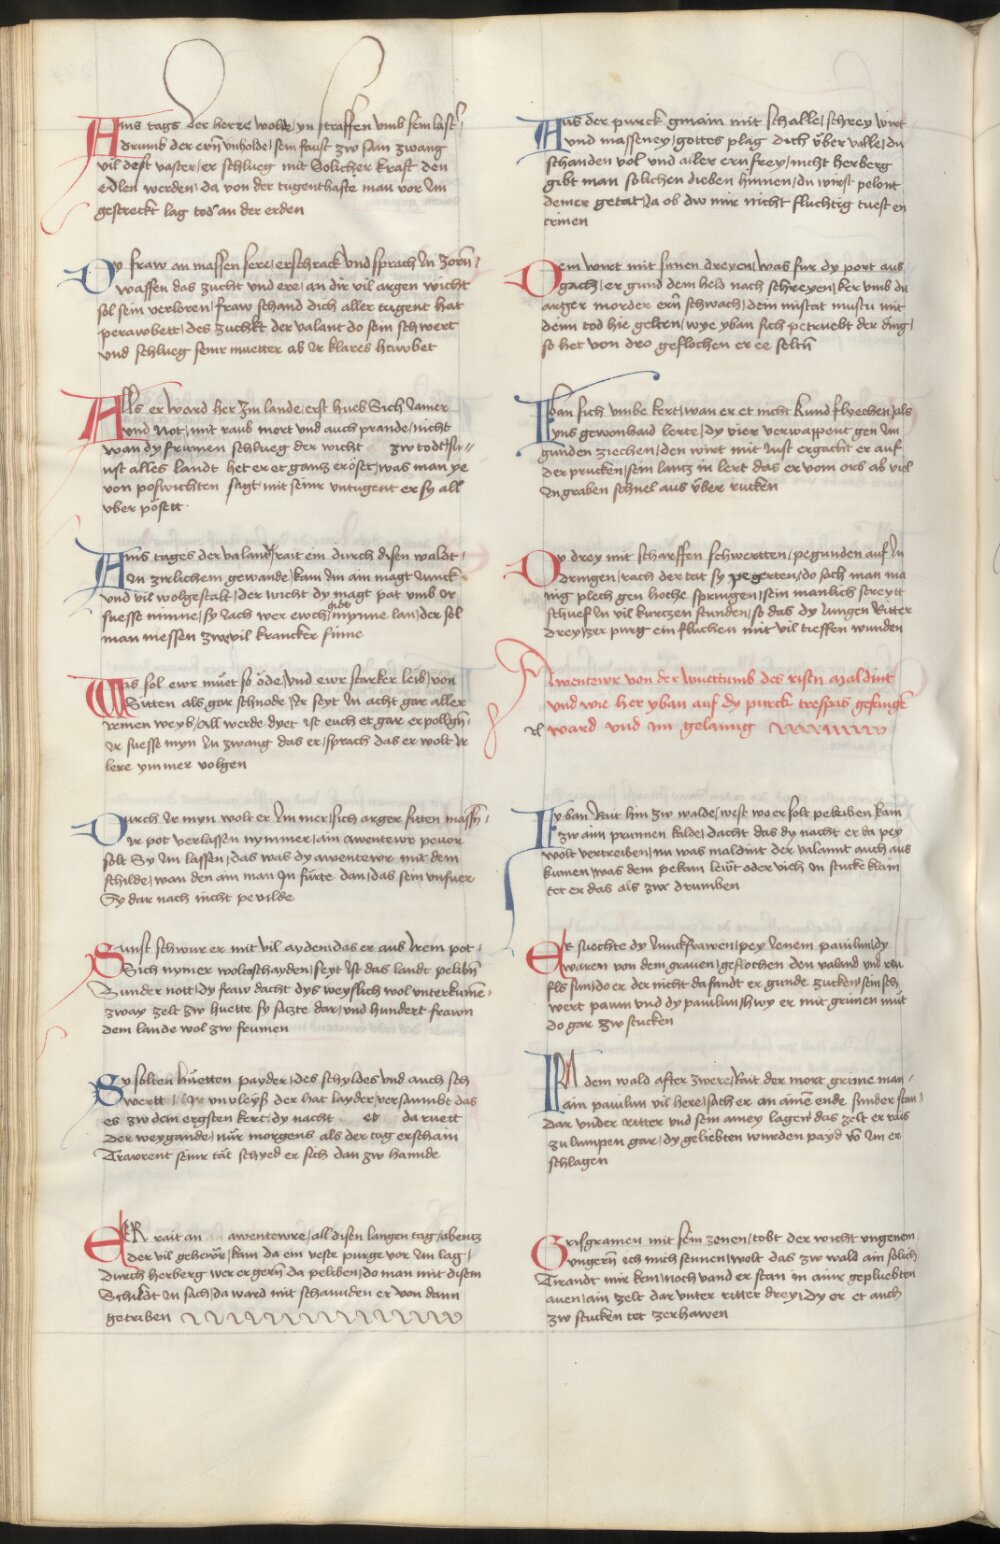 Ains tags der herre wolde yn straffen umb sein last
drumb der ern unholde sein faust zw sam zwang
vil dest vaster er schlueg mit Solicher kraft den
edlen werden da von der tugenthafte man vor im
gestreckt lag tod an der erden
Dy fraw an massen sere erschrack und sprach in zorn
waffen das zucht und ere an dir vil argen wicht
sol sein verloren fraw schand dich aller tugent hat
perawbett des zuckht der valant do sein schwert
und schlueg seinr muetter ab ir klares hawbet
Alls er ward her zm lande erst hueb Sich iamer
und not mit raub mort und auch prande nicht
wan dy frumen schlueg der wicht zw todt su
nst alles landt het er er gantz eröset was man ye
von poswichten sagt mit seinr untugent er sy all
uber pösett
Ains tages der valand rait ein durch disen waldt
in zirlichem gewande kam im ain magt iunck
und vil wolgestalt der wicht dy magt pat umb ir
suesse minne sy iach wer ewch mynne lan der sol
man niessen zwvil krancker sinne
Was sol ewr müet so öde und ewr starcker leib von
Sitten als gar schnode ir seyt in acht gar aller
reinen weyb All werde dyet ist euch et gar erpolgn
ir suesse myn in zwang das er sprach das er wolt ir
lere ymmer volgen
Durch ir myn wolt er immer sich arger sitten massn
ir pot verlassen nymmer ain awentewr pevor
solt Sy im lassen das was dy awentewr mit dem
schilde wan den ain man in fürte dan das sein unfuer
Sy dar nach nicht pevilde
Sunst schwur er mit vil ayden das er aus irem pot
Sich nymer wolt schayden seyt ist das landt pelibn
Sunder nott dy fraw dacht dys weyslich wol unterkume
zway zelt zw huette sy satzte dar und hundert frawn
dem lande wol zw frumen
Sy solten hüetten payder des schyldes und auch sch
wertt ir unvleyß der hat layder versaumbt das
es zw dem ergsten kert dy nacht et da ruett
der weygande nür morgens als der tag erscham
Trawrent seinr tät schyed er sich dan zw hannde
ER rait an awentewre all disen langen tag abentz
der vil gehewr kam da ein veste purge vor im lag
durch herberg wer er gern da peliben do man mit disem
Schildt in sach da ward mit schannden er von dann
getriben
Aus der purck gmain mit schalle schrey wirt
und masseney gottes plag dich über valle du
schanden vol und ailer ern frey nicht herberg
gibt man solichen dieben hinnen du wirst pelont
deiner getat ia ob dw mir nicht fluchtig tuest en
trinen
Dem wirt mit sinen dreyen was fur dy port aus
gach er gund dem held nach schreyen ker umb du
arger morder ern schwach dein mistat mustu mit
denn tod hie gelten wye yban sich petruebt der ding
so het von dro geflochen er ee seltn
Yban sich umbe kert wan er et nicht kund flyechen als
yns gewonhaid lerte dy vier verwappent gen im
gunden ziechen den wirt mit lust ergacht er auf
der prucken sein lantz in lert das er vom ors ab viel
in graben schnel aus über rucken
Dy drey mit scharffen schwertten pegunden auf in
dringen rach der tat sy pegerten do sach man ma
nig plech gen hoche springen sein manlich streytt
schuef in vil kurtzen stunden so das dy iungen Ritter
drey zer purg ein fluchen mit vil tieffen wunden
Awentewr von der wuettumb des risen Maldint
und wie her yban auf dy purck trespas gefangk
ward und im gelanng
Yban Rait hin zw walde west wo er solt peleiben kam
zw aim prunnen kalde dacht das dy nacht er da pey
wolt vertreiben nu was maldint der valannt auch aus
kumen was dem pekam lewt oder viech in stucke klain
tet er das als zwr drumben
Er suechte dy iunckfrawen pey ienem paviliun dy
waren von dem grauen geflochen den valand und teu
fls sun do er der nicht da fandt er gunde zucken sein sch
wert paum und dy paviliun hwy er mit grimen mut
do gar zw stucken
IN dem wald after zwere Rait der mort grime man
ain paviliun vil here sach er an ainem ende sunder stan
dar under ritter und sein amey lagen das zelt er rais
zu lumpen gar dy geliebten wurden payd von im er
schlagen
Grisgramen mit sein zenen tobt der wicht ungenem
ungern ich mich sennen wolt das zw wald ain solich
Tirandt mir kem noch vand er stan in ainr gepluebten
auen ain zelt dar unter ritter drey dy er et auch
zw stucken tet zerhawen